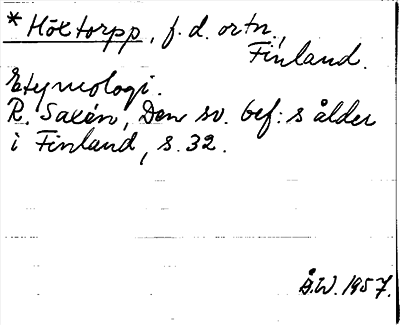 * Höxtorpp, f. d. ortn.,
Finland.
Etymologi.
R. Saxén, Den sv. bef:s ålder
i Finland, s. 32.
Å.W. 1957.